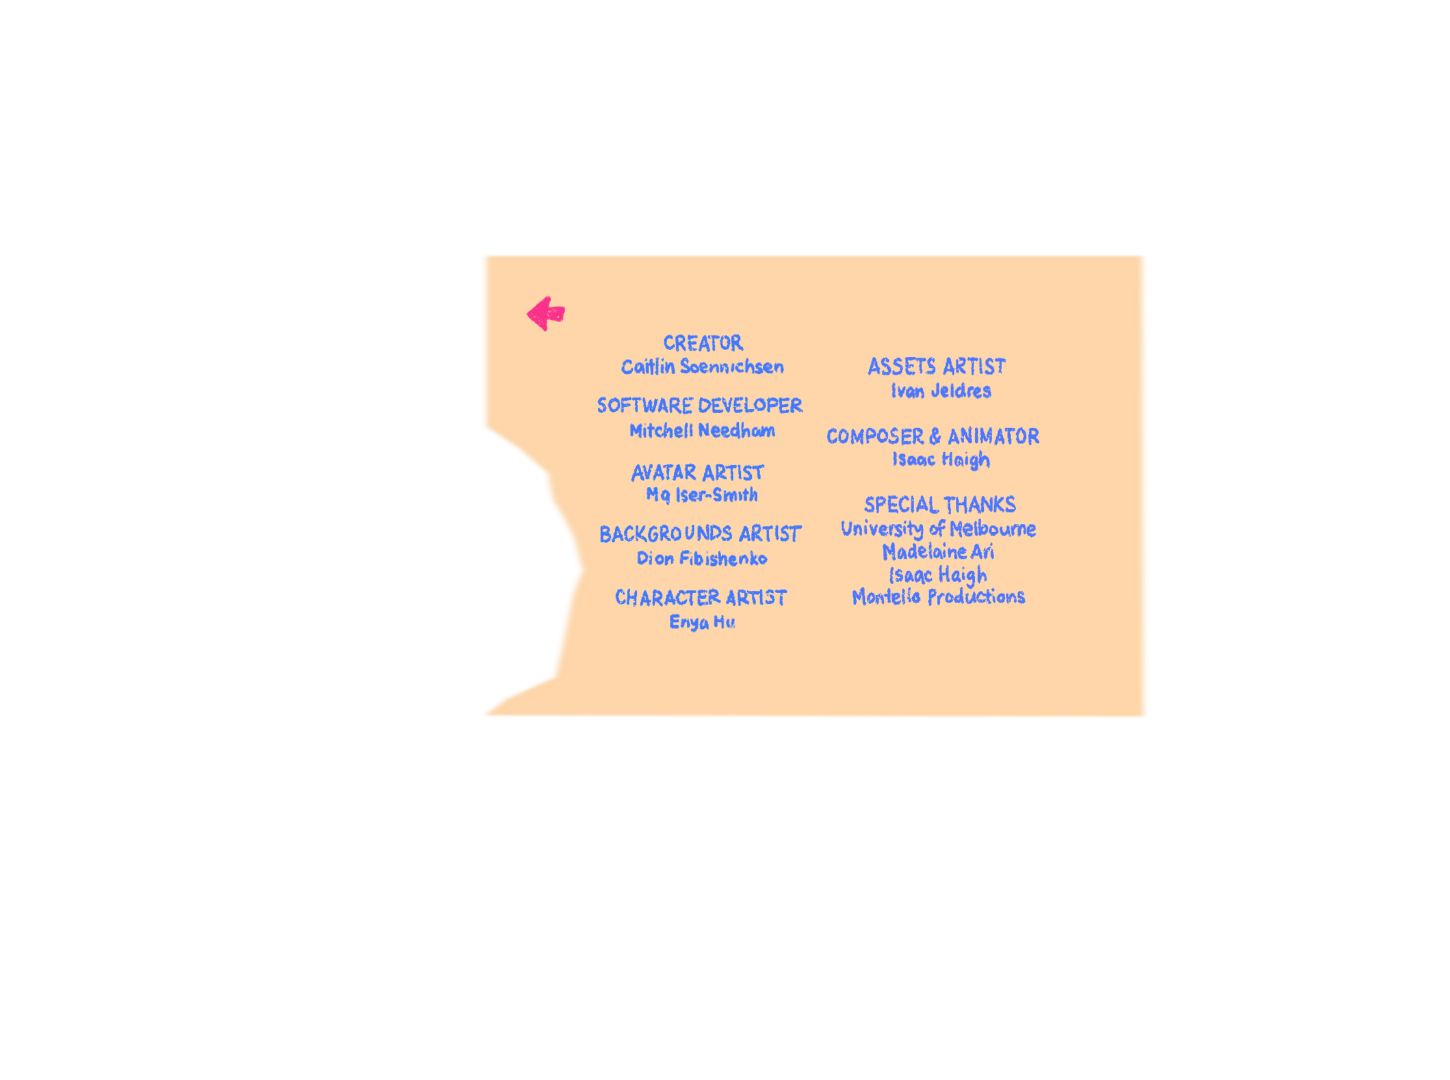 CREATOR
Caitlin Soennichsen
SOFTWARE DEVELOPER
Mitchell Needham
AVATAR ARTIST
Mq Iser-Smith
BACKGROUNDS ARTIST
Dion Fibishenko
CHARACTER ARTIST
Enya Hu
ASSETS ARTIST
Ivan Jeldres
COMPOSER & ANIMATOR
Isaac Haigh
SPECIAL THANKS
University of Melbourne
Madelaine Ari
Isaac Haigh
Montello Productions